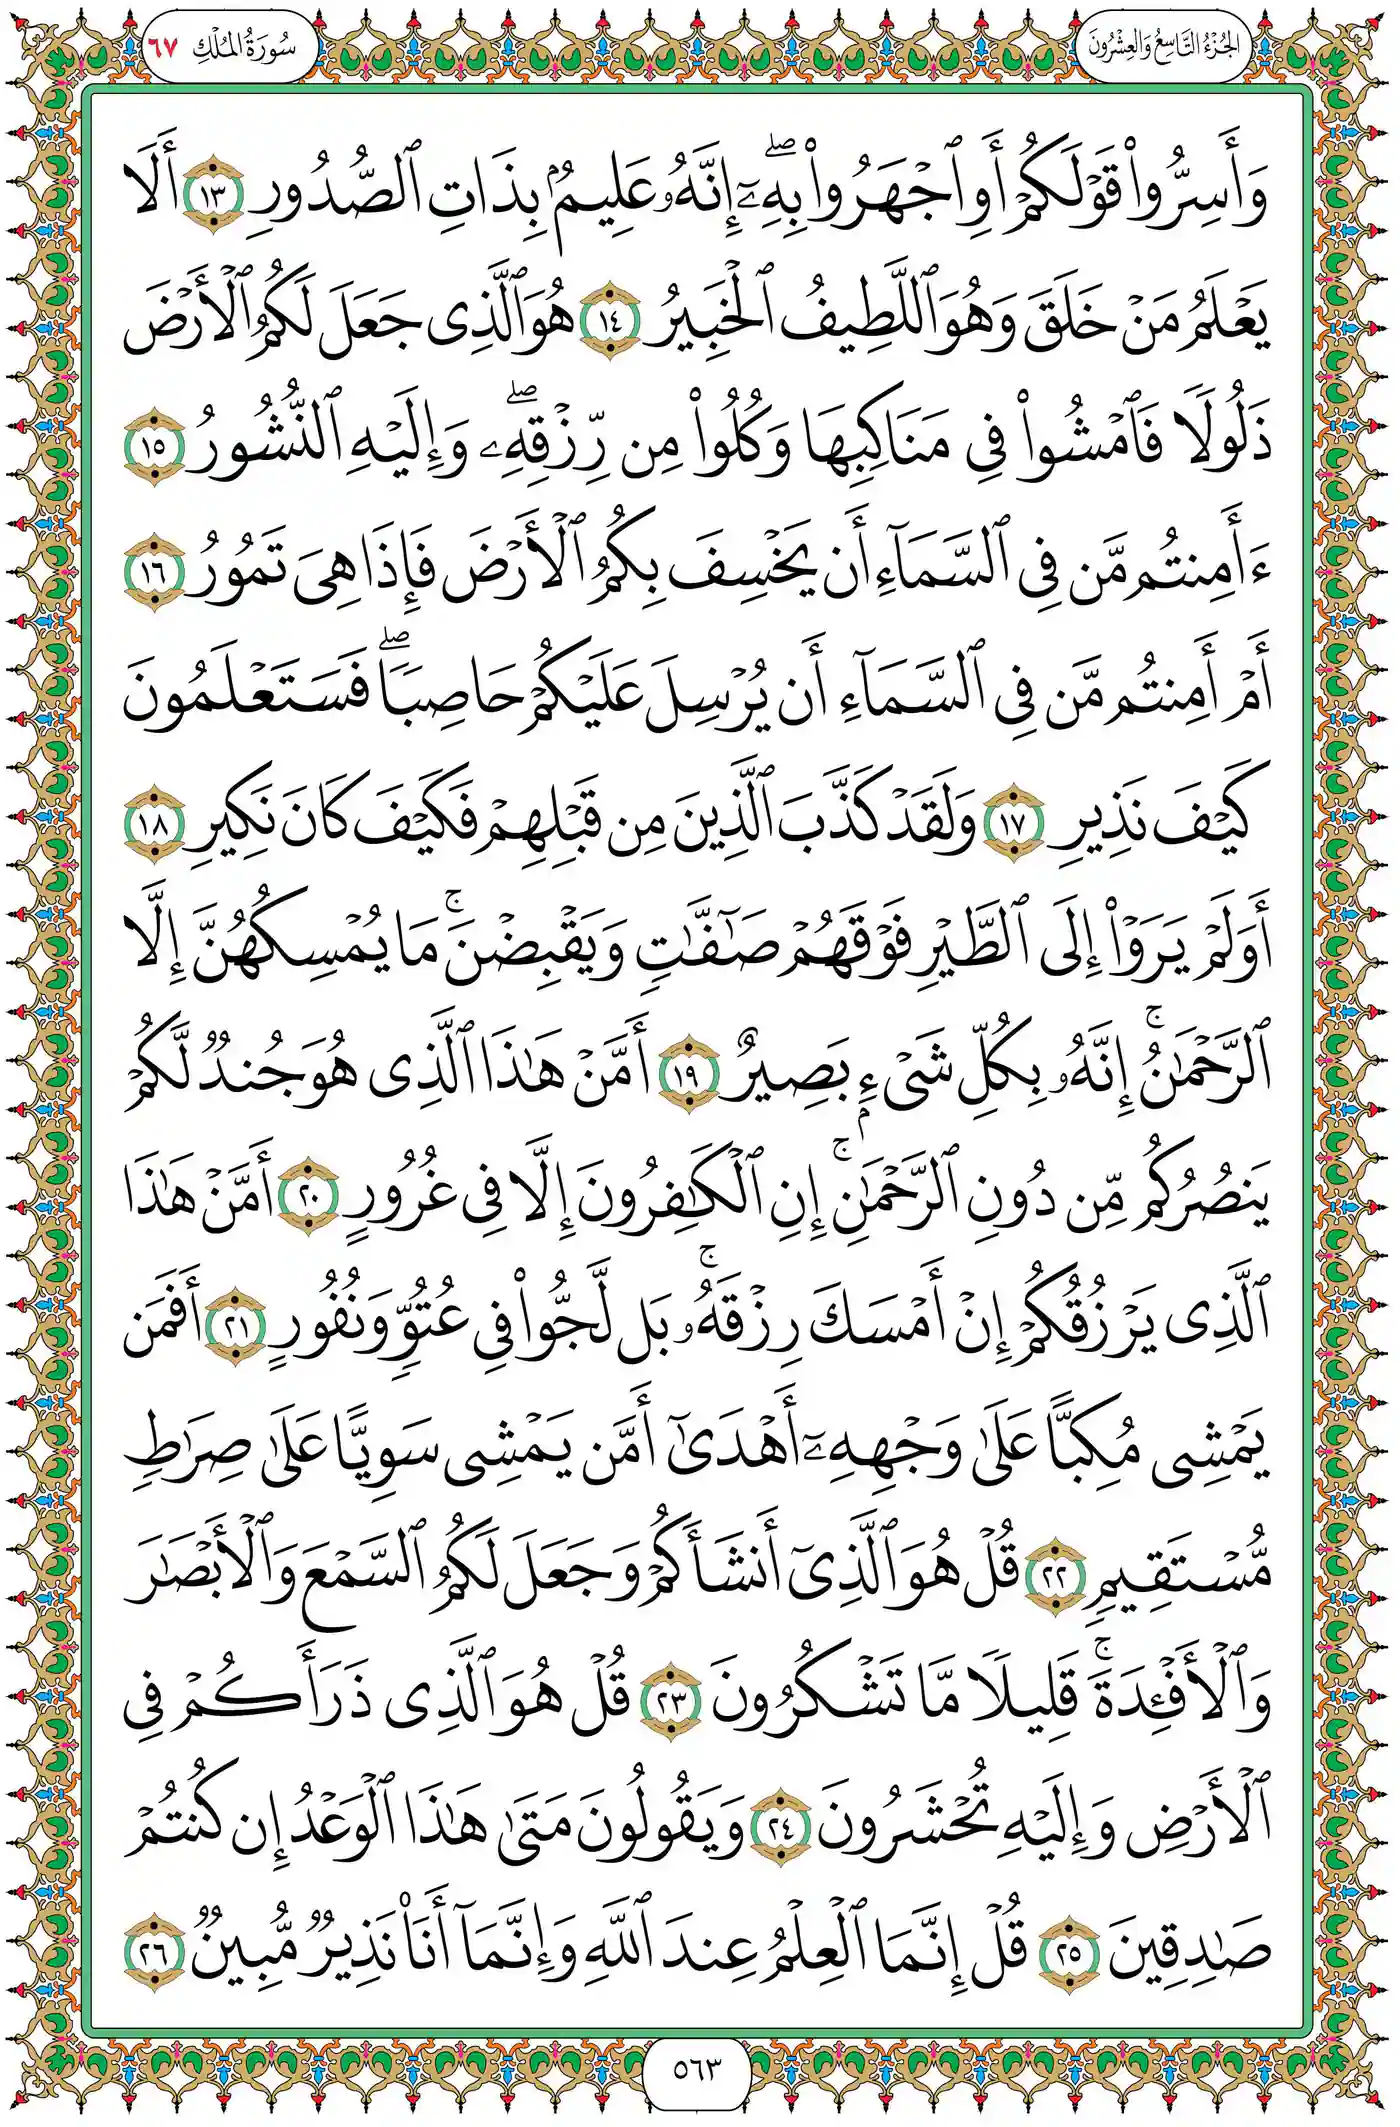 الجُزْءُ التَّاسِعُ وَالعِشْرُونَ
سُورَةُ المُلْكِ ٦٧
وَأَسِرُّواْ قَوۡلَكُمۡ أَوِ ٱجۡهَرُواْ بِهِۦٓۖ إِنَّهُۥ عَلِيمُۢ بِذَاتِ ٱلصُّدُورِ ١٣ أَلَا
يَعۡلَمُ مَنۡ خَلَقَ وَهُوَ ٱللَّطِيفُ ٱلۡخَبِيرُ ١٤ هُوَ ٱلَّذِى جَعَلَ لَكُمُ ٱلۡأَرۡضَ
ذَلُولًا فَٱمۡشُواْ فِى مَنَاكِبِهَا وَكُلُواْ مِن رِّزۡقِهِۦۖ وَإِلَيۡهِ ٱلنُّشُورُ ١٥
ءَأَمِنتُم مَّن فِى ٱلسَّمَآءِ أَن يَخۡسِفَ بِكُمُ ٱلۡأَرۡضَ فَإِذَا هِىَ تَمُورُ ١٦
أَمۡ أَمِنتُم مَّن فِى ٱلسَّمَآءِ أَن يُرۡسِلَ عَلَيۡكُمۡ حَاصِبًاۖ فَسَتَعۡلَمُونَ
كَيۡفَ نَذِيرِ ١٧ وَلَقَدۡ كَذَّبَ ٱلَّذِينَ مِن قَبۡلِهِمۡ فَكَيۡفَ كَانَ نَكِيرِ ١٨
أَوَلَمۡ يَرَوۡاْ إِلَى ٱلطَّيۡرِ فَوۡقَهُمۡ صَٰٓفَّٰتٍ وَيَقۡبِضۡنَۚ مَا يُمۡسِكُهُنَّ إِلَّا
ٱلرَّحۡمَٰنُۚ إِنَّهُۥ بِكُلِّ شَىۡءِۭ بَصِيرٌ ١٩ أَمَّنۡ هَٰذَا ٱلَّذِى هُوَ جُندٌ لَّكُمۡ
يَنصُرُكُم مِّن دُونِ ٱلرَّحۡمَٰنِۚ إِنِ ٱلۡكَٰفِرُونَ إِلَّا فِى غُرُورٍ ٢٠ أَمَّنۡ هَٰذَا
ٱلَّذِى يَرۡزُقُكُمۡ إِنۡ أَمۡسَكَ رِزۡقَهُۥۚ بَل لَّجُّواْ فِى عُتُوٍّ وَنُفُورٍ ٢١ أَفَمَن
يَمۡشِى مُكِبًّا عَلَىٰ وَجۡهِهِۦٓ أَهۡدَىٰٓ أَمَّن يَمۡشِى سَوِيًّا عَلَىٰ صِرَٰطٍ
مُّسۡتَقِيمٍ ٢٢ قُلۡ هُوَ ٱلَّذِىٓ أَنشَأَكُمۡ وَجَعَلَ لَكُمُ ٱلسَّمۡعَ وَٱلۡأَبۡصَٰرَ
وَٱلۡأَفۡـِٔدَةَۚ قَلِيلًا مَّا تَشۡكُرُونَ ٢٣ قُلۡ هُوَ ٱلَّذِى ذَرَأَكُمۡ فِى
ٱلۡأَرۡضِ وَإِلَيۡهِ تُحۡشَرُونَ ٢٤ وَيَقُولُونَ مَتَىٰ هَٰذَا ٱلۡوَعۡدُ إِن كُنتُمۡ
صَٰدِقِينَ ٢٥ قُلۡ إِنَّمَا ٱلۡعِلۡمُ عِندَ ٱللَّهِ وَإِنَّمَآ أَنَا۠ نَذِيرٌ مُّبِينٌ ٢٦
٥٦٣